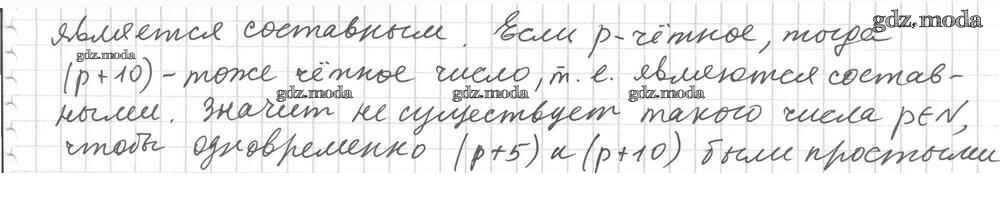 является составным. Если p-чётное, тогда
(p+10) - тоже чётное число, т. е. являются состав-
ными. Значит не существует такого числа p∈N,
чтобы одновременно (p+5) и (p+10) были простыми
gdz.moda
gdz.moda
gdz.moda
gdz.moda
gdz.moda